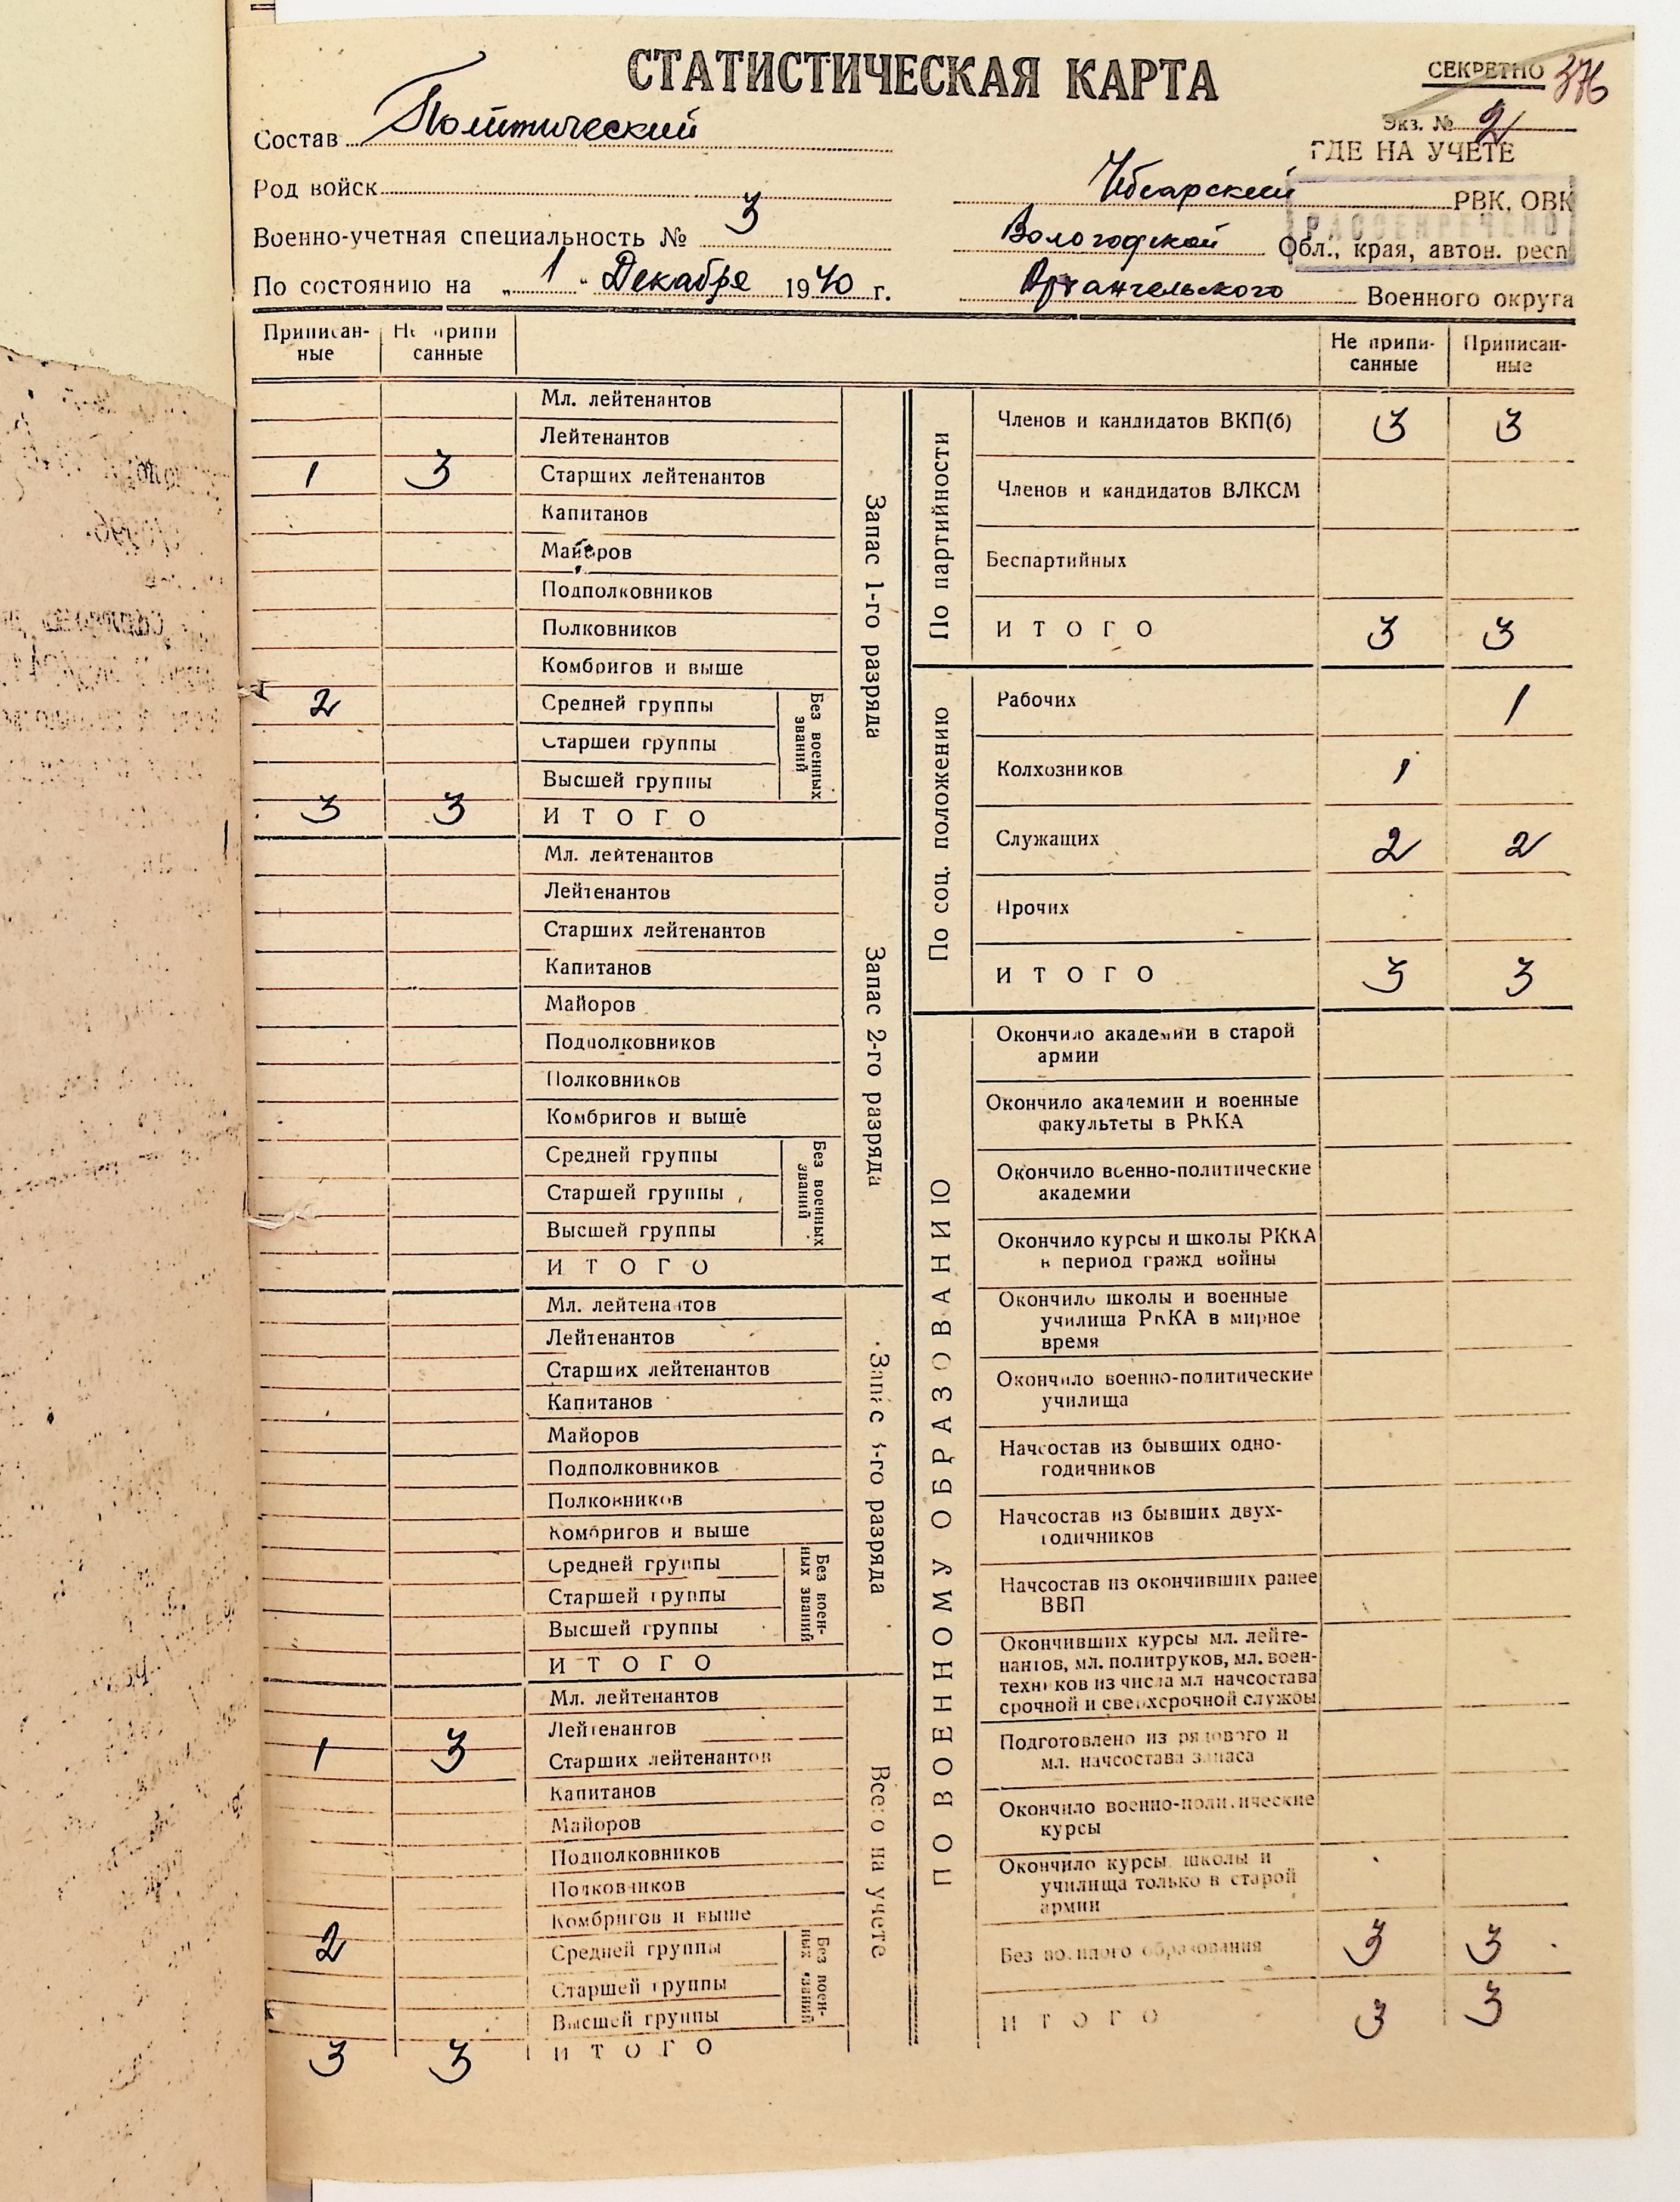 СТАТИСТИЧЕСКАЯ КАРТА
СЕКРЕТНО 376
Экз. № 2
ГДЕ НА УЧЕТЕ
Состав Политический
Род войск
РВК, ОВК
РАССЕКРЕЧЕНО
Военно-учетная специальность № 3
Вологодской Обл., края, автон. респ
По состоянию на „ 1 " Декабря 1940 г.
Архангельского Военного округа
Приписан- Не припи
ные санные
Не припи- Приписан-
санные ные
Мл. лейтенантов
Лейтенантов
1 3 Старших лейтенантов
Капитанов
Майоров
Подполковников
Полковников
Комбригов и выше
2 Средней группы
Старшей группы
Высшей группы
Без военных званий
3 3 ИТОГО
Запас 1-го разряда
Мл. лейтенантов
Лейтенантов
Старших лейтенантов
Капитанов
Майоров
Подполковников
Полковников
Комбригов и выше
Средней группы
Старшей группы
Высшей группы
Без военных званий
ИТОГО
Запас 2-го разряда
Мл. лейтенантов
Лейтенантов
Старших лейтенантов
Капитанов
Майоров
Подполковников
Полковников
Комбригов и выше
Средней группы
Старшей группы
Высшей группы
Без воен-
ных званий
ИТОГО
Запас 3-го разряда
Мл. лейтенантов
Лейтенантов
1 3 Старших лейтенантов
Капитанов
Майоров
Подполковников
Полковников
Комбригов и выше
2 Средней группы
Старшей группы
Высшей группы
Без воен-
ных званий
3 3 ИТОГО
Всего на учете
По партийности
Членов и кандидатов ВКП(б) 3 3
Членов и кандидатов ВЛКСМ
Беспартийных
ИТОГО 3 3
По соц. положению
Рабочих 1
Колхозников 1
Служащих 2 2
Прочих
ИТОГО 3 3
ПО ВОЕННОМУ ОБРАЗОВАНИЮ
Окончило академии в старой
армии
Окончило академии и военные
факультеты в РККА
Окончило военно-политические
академии
Окончило курсы и школы РККА
в период гражд войны
Окончило школы и военные
училища РККА в мирное
время
Окончило военно-политические
училища
Начсостав из бывших одно-
годичников
Начсостав из бывших двух-
годичников
Начсостав из окончивших ранее
ВВП
Окончивших курсы мл. лейте-
нантов, мл. политруков, мл. воен-
техников из числа мл начсостава
срочной и сверхсрочной службы
Подготовлено из рядового и
мл. начсостава запаса
Окончило военно-политические
курсы
Окончило курсы школы и
училища только в старой
армии
Без военного образования 3 3
ИТОГО 3 3